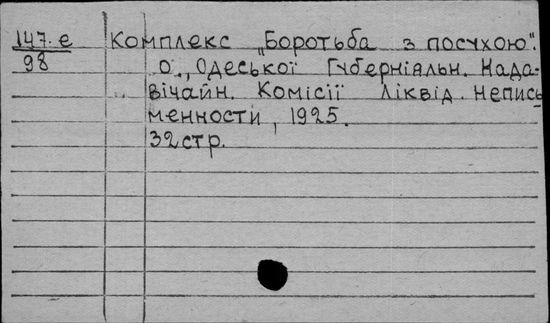 147.е Комплекс „Боротьба з посухою".
98 О., Одеської Губерніяльн. Нада-
вічайн. Комісії Ліквід. Непись
менности, 1925.
32стр.